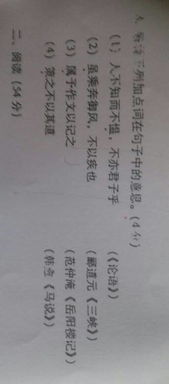 4. 解释下列加点词在句子中的意思。(4分)
(1) 人不知而不愠,不亦君子乎 (《论语》)
(2) 虽乘奔御风,不以疾也 (郦道元《三峡》)
(3) 属予作文以记之 (范仲淹《岳阳楼记》)
(4) 策之不以其道 (韩愈《马说》)
二、阅读 (54 分)